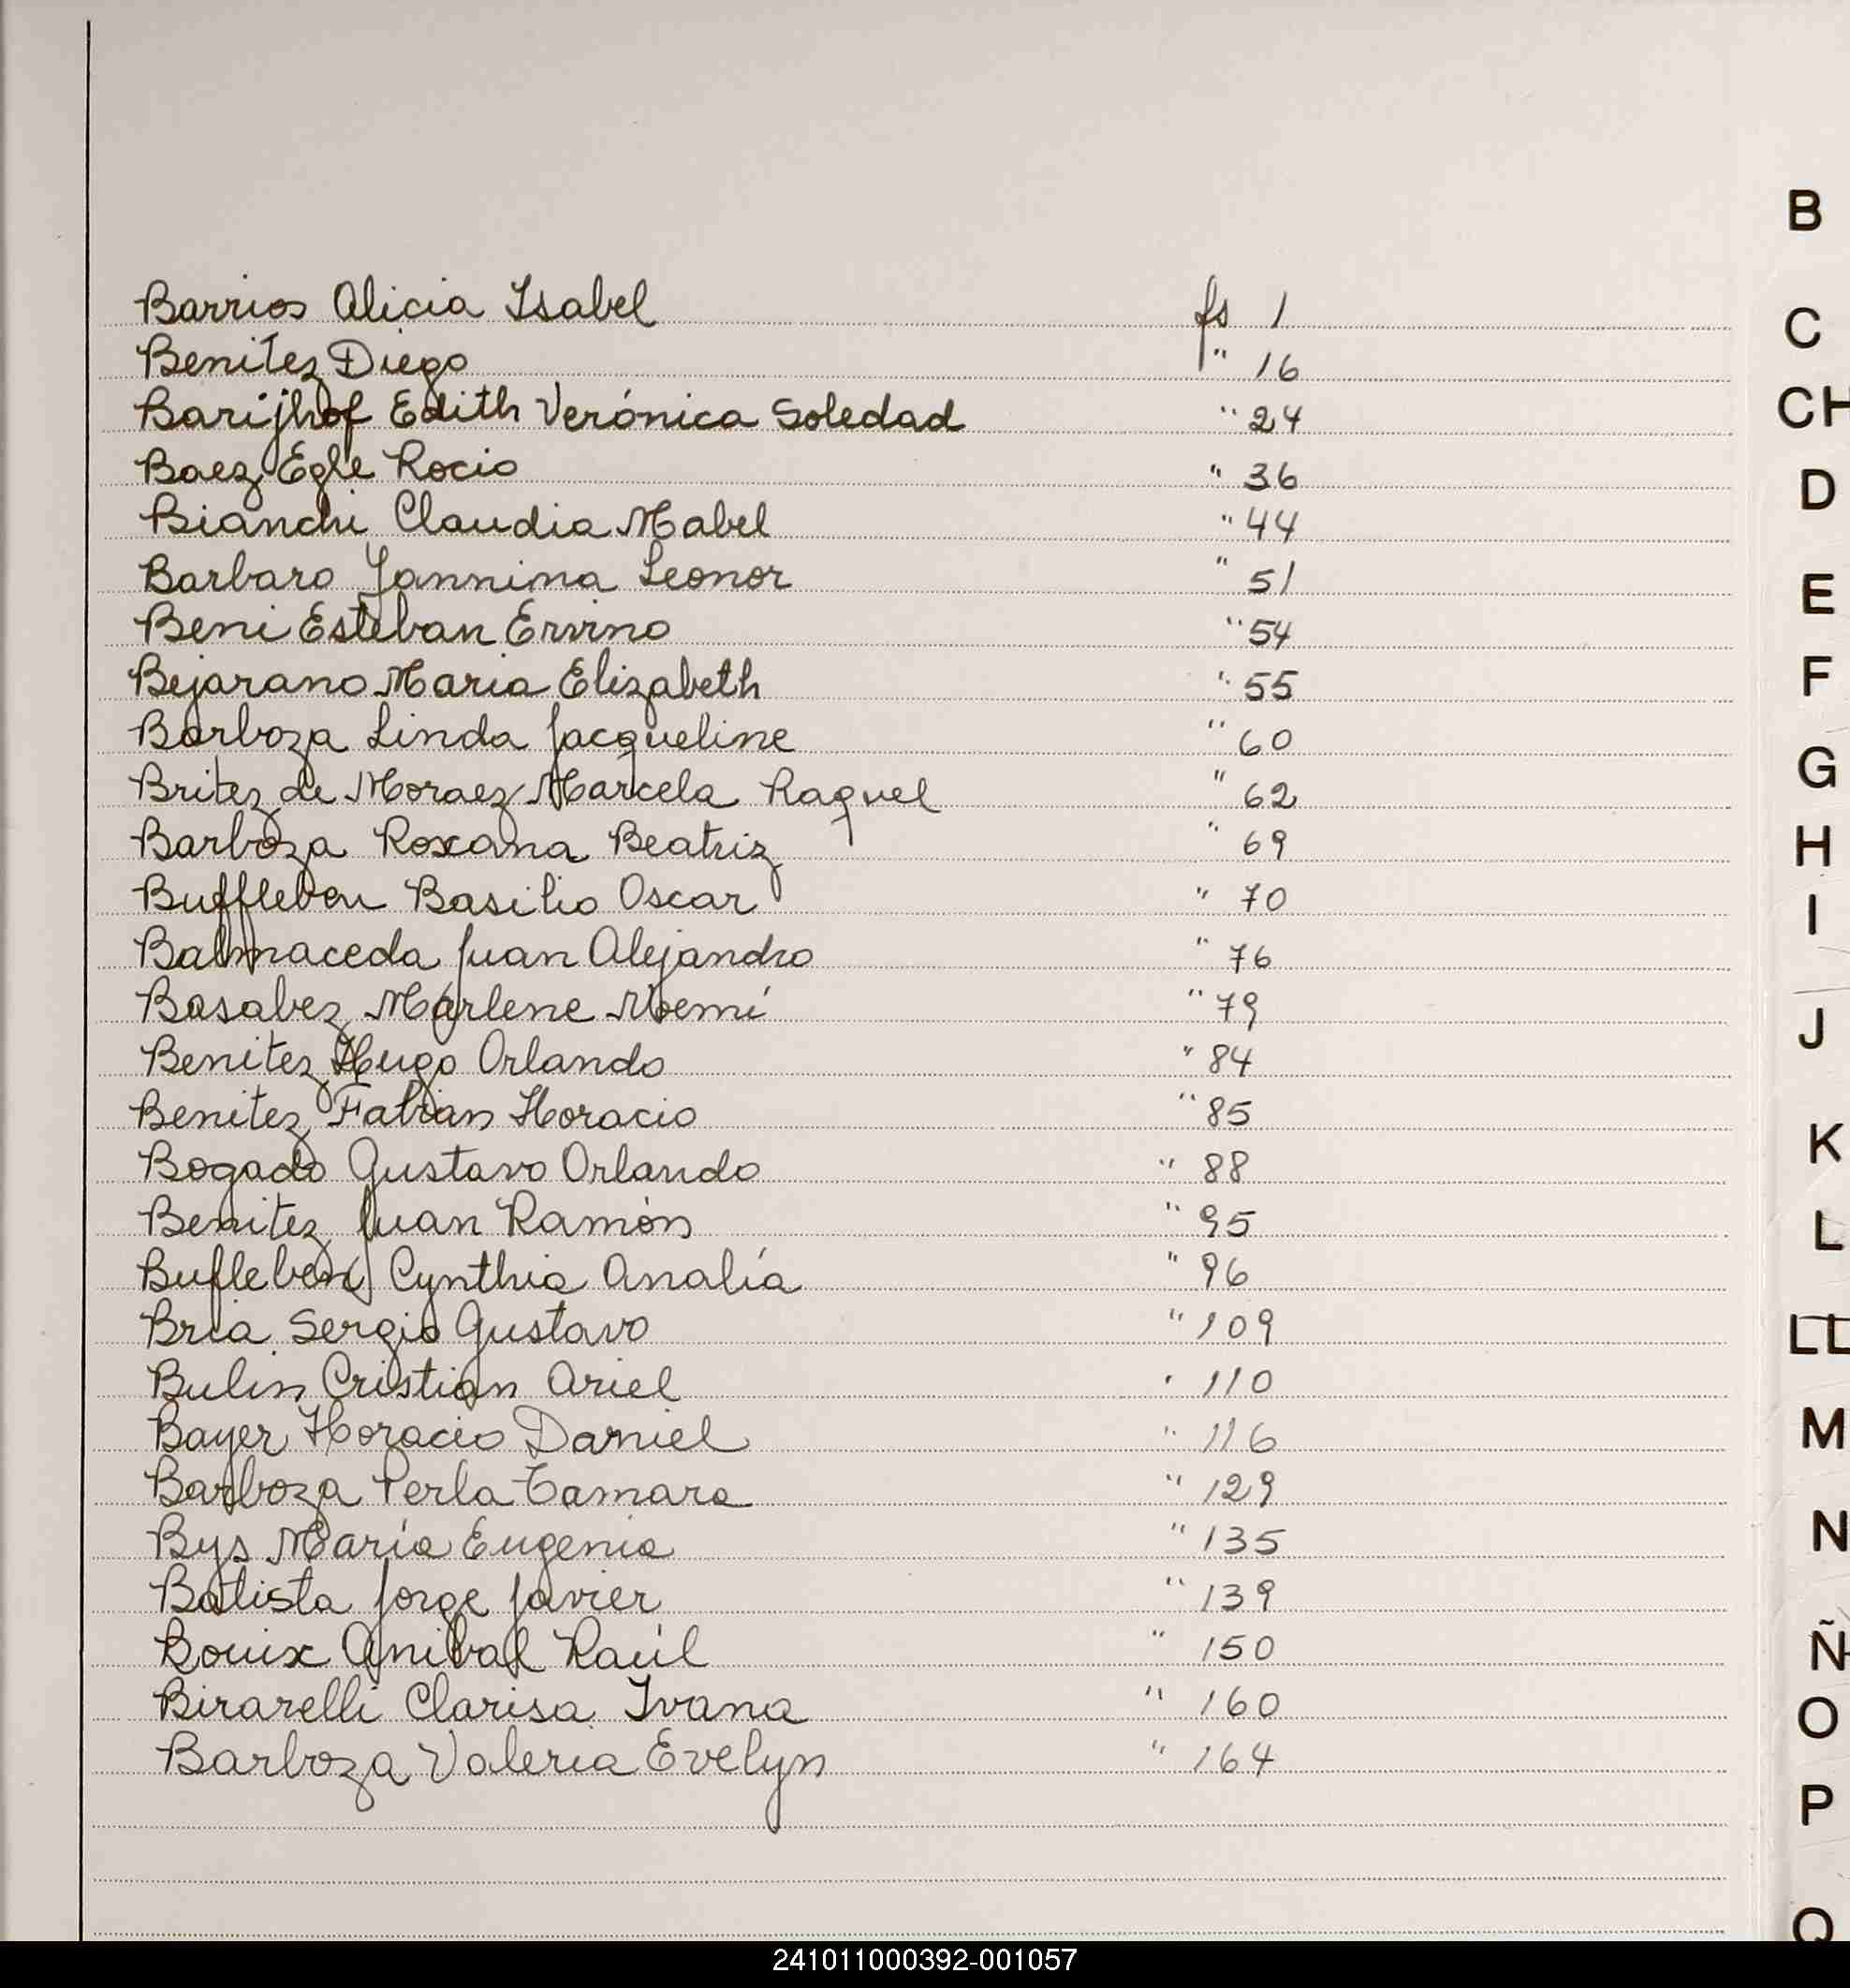 Barrios Alicia Isabel fs 1
Benitez Diego " 16
Barijhof Edith Verónica Soledad " 24
Baez Egle Rocio " 36
Bianchi Claudia Mabel " 44
Barbaro Yannina Leonor " 51
Beni Esteban Ervino " 54
Bejarano Maria Elizabeth " 55
Barboza Linda Jacqueline " 60
Britez de Moraez Marcela Raquel " 62
Barboza Roxana Beatriz " 69
Buffleben Basilio Oscar " 70
Balmaceda Juan Alejandro " 76
Basabez Marlene Noemí " 79
Benitez Hugo Orlando " 84
Benitez Fabian Horacio " 85
Bogado Gustavo Orlando " 88
Benitez Juan Ramón " 95
Bufleben Cynthia Analía " 96
Bria Sergio Gustavo " 109
Bulin Cristian Ariel " 110
Bayer Horacio Daniel " 116
Barboza Perla Tamara " 129
Bys María Eugenia " 135
Batista Jorge Javier " 139
Bouix Anibal Raúl " 150
Birarelli Clarisa Ivana " 160
Barboza Valeria Evelyn " 164
B
C
CH
D
E
F
G
H
I
J
K
L
LL
M
N
Ñ
O
P
Q
241011000392-001057